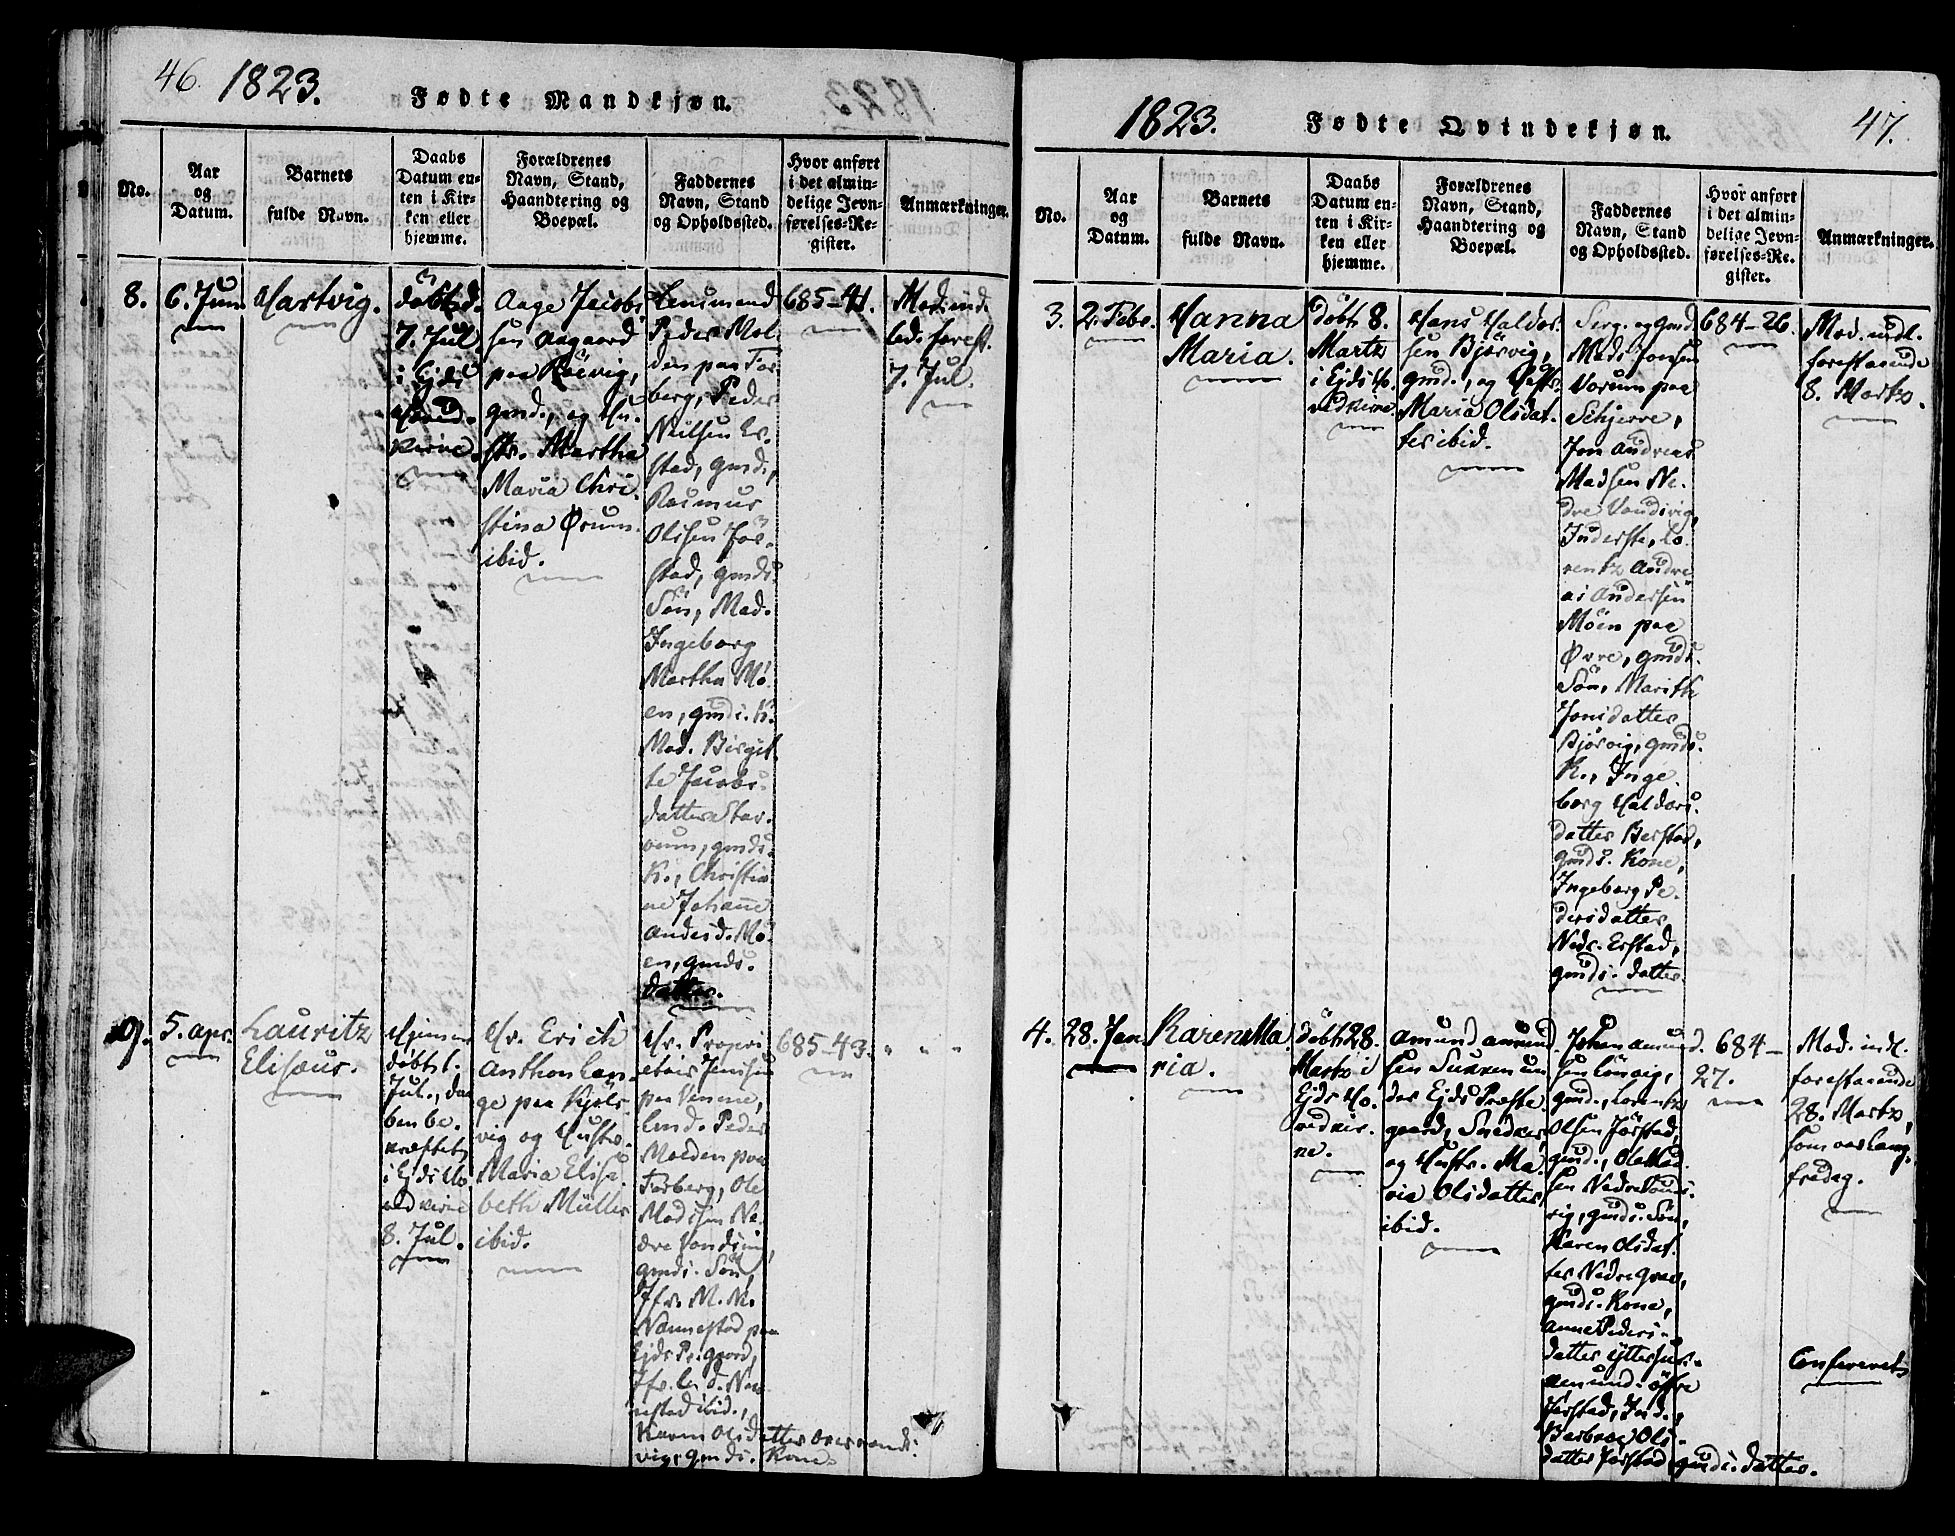 46. 1823. Fødte Mandkjøn.
No.
Aar
og
Datum.
Barnets
fulde Navn.
Daabs
Datum en-
ten i Kir-
ken eller
hjemme.
Forældrenes
Navn, Stand,
Haandtering og
Boepæl.
Faddernes
Navn, Stand
og Opholdssted.
Hvor anført
i det almin-
delige Jevn-
førelses-Re-
gister.
Anmærkninger.
8.
6. Jun
Hartvig.
døbt d.
7. Jul
i Ejds
Hoved-
kirke.
Aage Jacob-
sen Aagaard
paa Røevig,
gmd., og Hu-
str. Martha
Maria Chri-
stina Ørum
ibid.
Lensmand
Peder Mol-
den paa For-
berg, Peder
Neilsen Er-
stad, gmd.,
Rasmus
Olsen Jør-
stad, gmds.
Søn, Mad.
Ingeborg
Martha Mö-
en, gmds. K.
Mad. Birgit-
te Jacobs-
datter Star-
oum, gmds.
K., Christia-
ne Johanne
Andersd. Mö-
en, gmds.
datter.
685-41.
Mod. ind-
led. forest.
7. Jul.
9.
5. Apr.
Lauritz
Eliseus.
Hjemme
døbt 1.
Jul., daa-
ben be-
kræftet
i Ejds Ho-
vedkirke
8. Jul.
Hr. Erich
Anthon Lan-
ge paa Kjøls-
vig og Hustr.
Maria Elisa-
beth Müller
ibid.
Hr. Propri-
etair Jenssen
paa Vemme,
Lmd. Peder
Molden paa
Forberg, Ole
Madssen Ne-
dre Vandsvig,
gmds. Søn,
Jfr. M. N.
Nannestad paa
Ejds Pr.gaard,
Jfr. L. d. Nan-
nestad ibid.,
Karen Olsdatter Øvervands-
vig, gmds. Kone.
685-43.
" " "
1823. Fødte Qvindekjøn. 47.
No.
Aar
og
Datum.
Barnets
fulde Navn.
Daabs
Datum en-
ten i Kir-
ken eller
hjemme.
Forældrenes
Navn, Stand,
Haandtering og
Boepæl.
Faddernes
Navn, Stand
og Opholdssted.
Hvor anført
i det almin-
delige Jevn-
førelses-Re-
gister.
Anmærkninger.
3.
2. Febr.
Hanna
Maria.
døbt 8.
Marts
i Ejds Ho-
vedkirke.
Hans Haldor-
sen Bjørvig,
gmd., og Hustr.
Maria Olsdat-
ter ibid.
Serg. og gmd.
Mads Jonsen
Vorum paa
Schjerve,
Jon Andreas
Madsen Ne-
dre Vandsvig,
Inderste, Lo-
rentz Andre-
as Andersen
Möen paa
Øvre, gmds.
Søn, Marith
Jonsdatter
Bjørvig, gmds.
K., Inge-
borg Haldors-
datter Berstad,
gmds. Kone,
Ingeborg Pe-
dersdatter
Nedr. Erstad,
gmds. datter.
684-26.
Mod. indl.
forestaaende
8. Marts.
4.
28. Jan.
Karen Ma-
ria.
døbt 28.
Marts i
Ejds Ho-
vedkir-
ke.
Amund Amund-
sen Suknem un-
der Ejds Præste-
gaard, Snedker,
og Hustr. Ma-
ria Olsdatter
ibid.
Johan Amund-
sen Lönvig,
gmd., Lorentz
Olsen Jørstad,
gmd., Ole Mad-
sen Nedre Vands-
vig, gmds. Søn,
Karen Olsdat-
ter Nedre Graa,
gmds. Kone,
Anne Peders-
datter
Amunds. Øfre
Jørstad, Ind.,
Barbroe Ols-
datter Jørstad, gmds. datter.
684-
27.
Mod. indl.
forestaaende
28. Marts,
som var Lang-
fredag.
Confereret